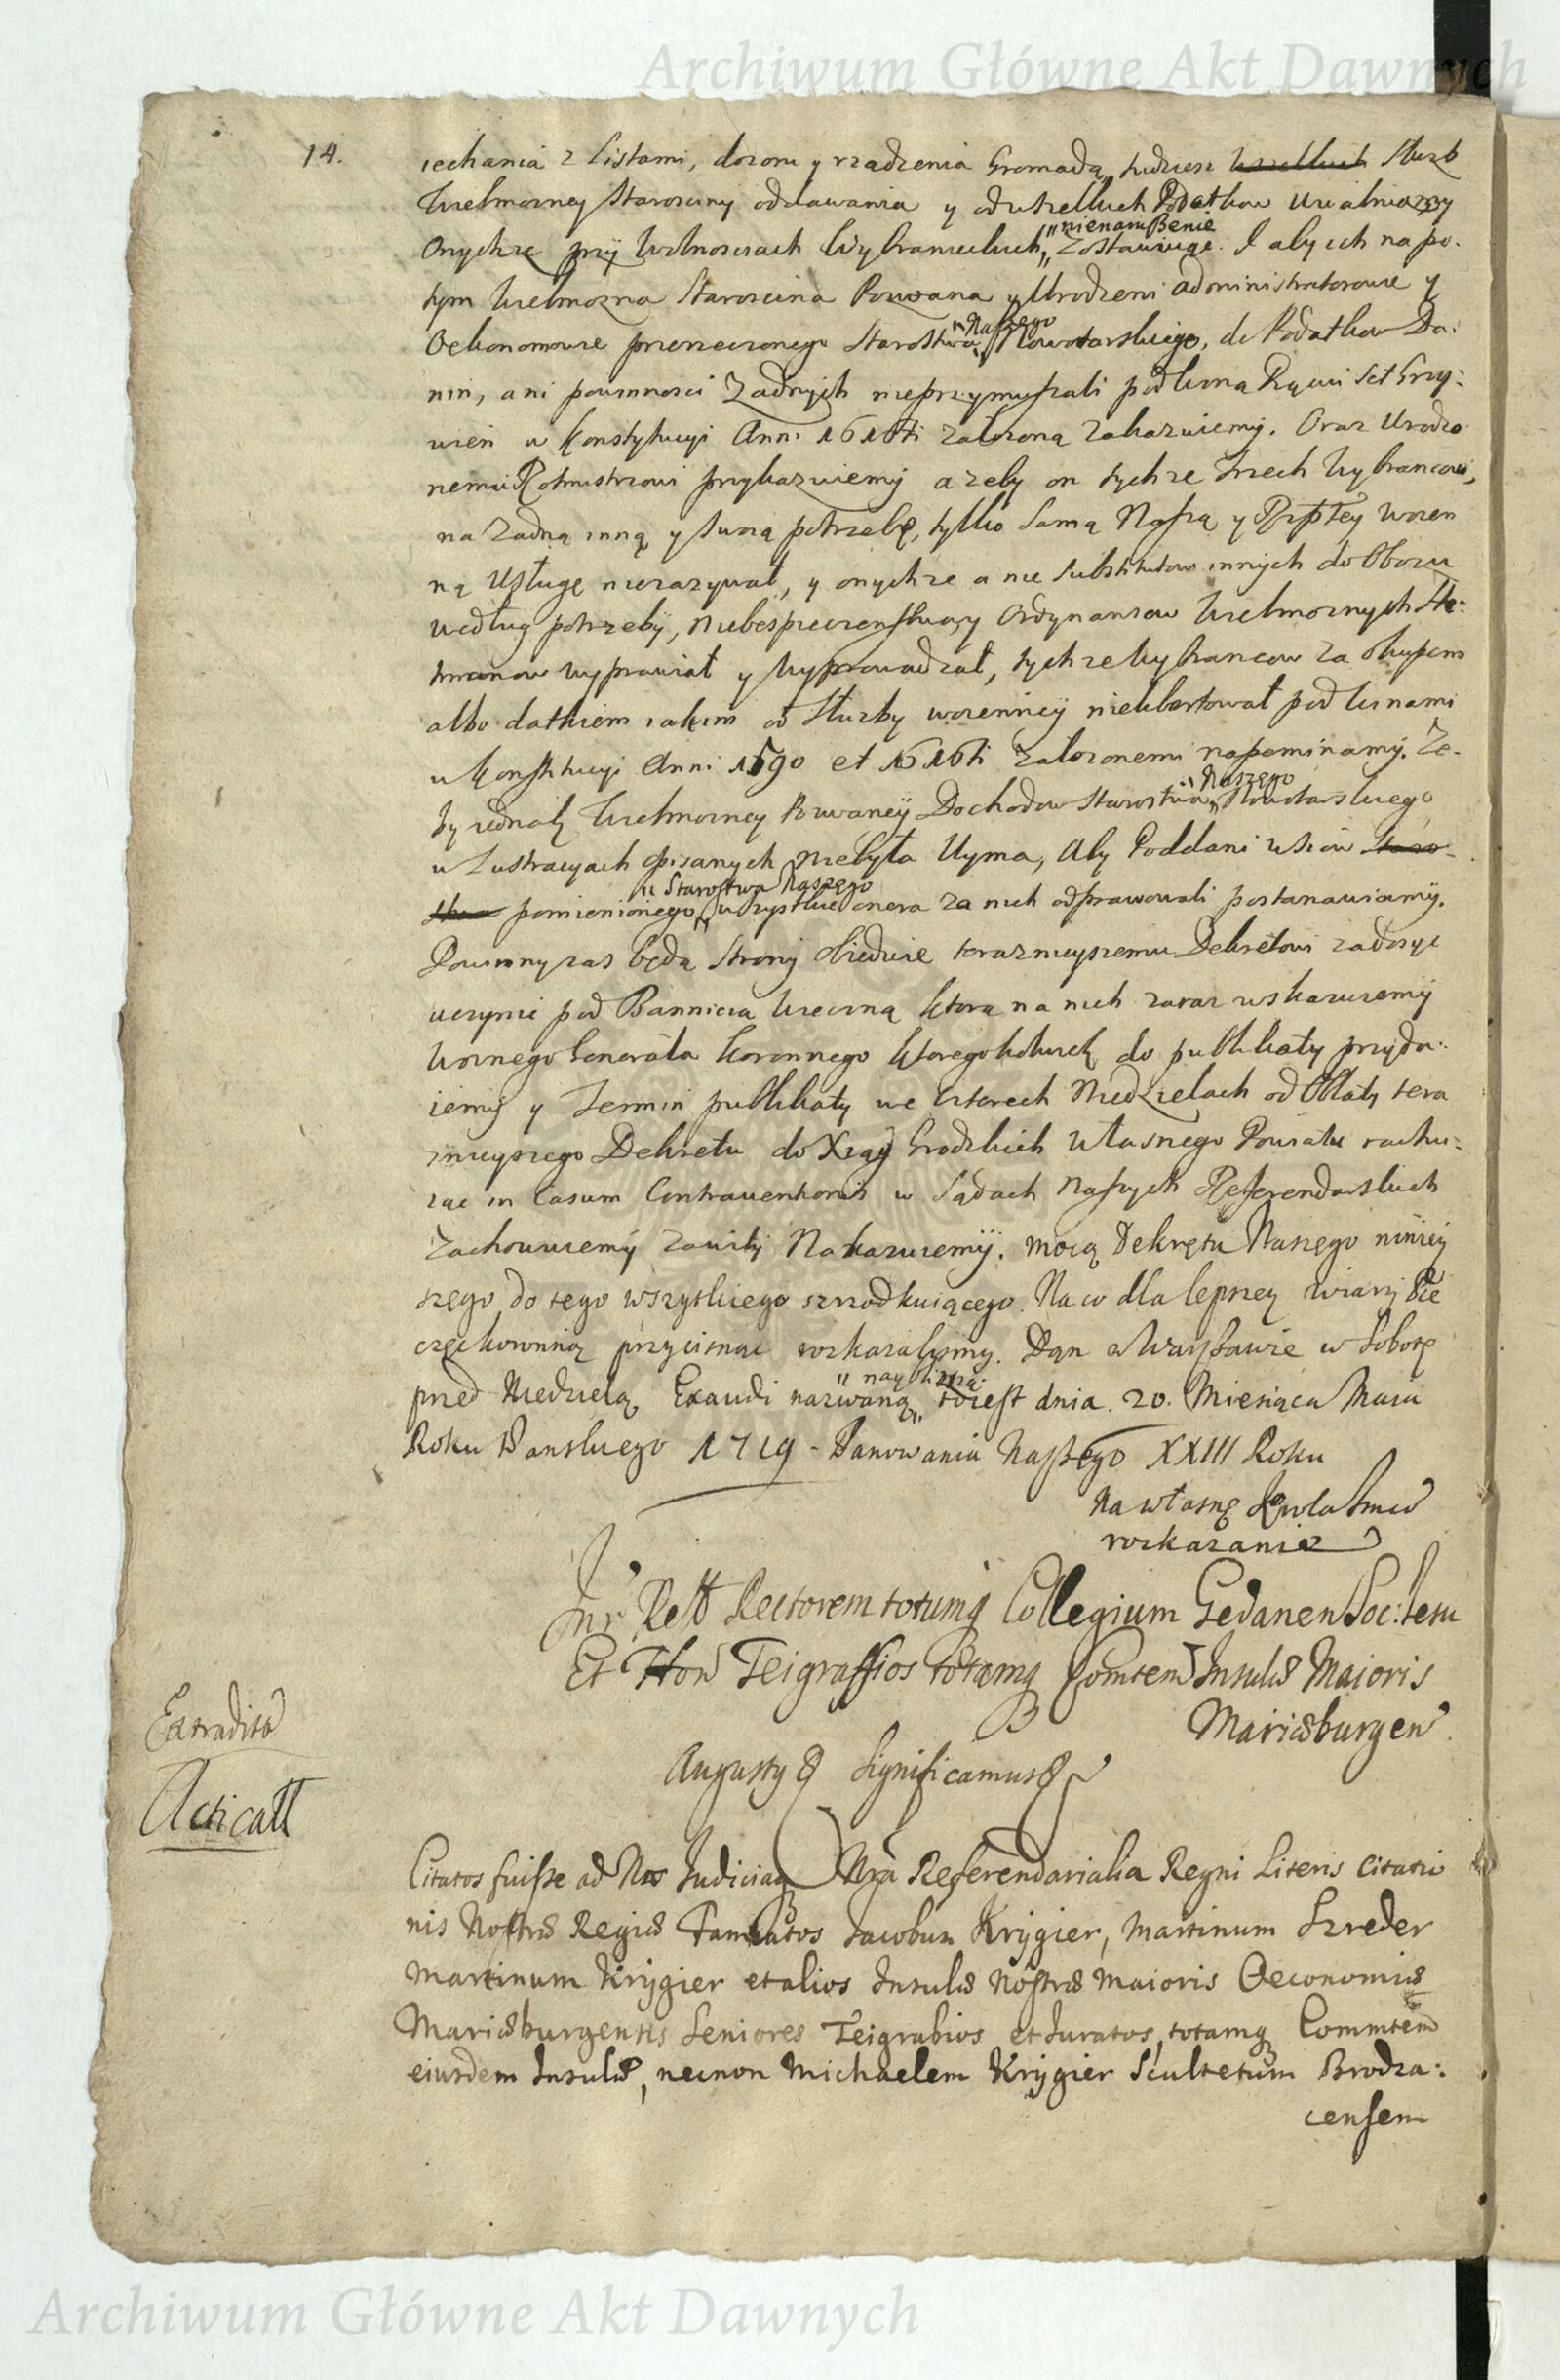 Archiwum Główne Akt Dawnych
14.
iechania z Listami, dozoru y rządzenia Gromadą, tudziesz wszelkich Służb
Wielmozney Starosciny oddawania y od wszelkich Podatkow uwalniaiąc
Onychze przy Wolnosciach Wybranieckich „nienaruszenie zostawuiąc. I aby ich na po-
tym Wielmozna Staroscina Pozwana y Urodzeni administratorowie y
Oekonomowie przerzeczonego Starostwa „Naszego Nowotarskiego, do Podatkow Da:
nin, ani powinnosci Zadnych nieprzymuszali pod winą Pięciu Set Grzy:
wien w Konstytucyi Anni 1616ti zalozoną zakazuiemy. Oraz Urodzo
nemu Rotmistrzowi przykazuiemy azeby on tychze trzech Wybrancow,
na Zadną inną y swą potrzebę, tylko Samą Naszą y Rzptey woien
ną Usługę niezazywał, y onychze a nie Substitutow innych do Obozu
według potrzeby, niebespieczenstwa y Ordynansow Wielmoznych He:
tmanow wyprawiał y wyprowadzał, tychze Wybrancow za okupem
albo datkiem iakim od Służby woienney nieliberował pod winami
w Konstitucyi Anni 1590 et 1616ti zalozonemi napominamy. Ze-
by iednak Wielmozney Pozwaney Dochodow Starostwa „Naszego Nowotarskiego,
w Lustracyach opisanych niebyła Uyma, Aby Poddani wsiow Staro-
stwa pomienionego „w Starostwa Naszego wszystkie onera za nich odprawowali postanawiamy.
Powinny zas będą Strony obiedwie teraznieyszemu Dekretowi zadosyc
uczynic pod Bannicia wieczną ktorą na nich zaraz wskazuiemy
Woznego Generała Koronnego ktoregokolwiek do publikaty przyda:
iemy y Termin publikaty we czterech Niedzielach od Oblaty tera
znieyszego Dekretu do Xiąg Grodzkich Własnego Powiatu rachu:
iąc in Casum Contraventionis w Sądach Naszych Referendarskich
Zachowuiemy zawity Nakazuiemy. mocą Dekretu Naszego niniey
szego do tego wszytkiego szrzodkuiącego. Na co dla lepszey wiary Pie
częc koronną przycisnąc rozkazalismy. Dan w Warszawie w Sobotę
przed Niedzielą Exaudi nazwaną „naybliszą toiest dnia 20. Miesiąca Maia
Roku Panskiego 1719 - Panowania Naszego XXIII Roku
Na własne Krola Jmci
rozkazanie
Inr Rel Rectorem totumq Collegium Gedanen Soc: Jesu
Et Hon Teigraffios totamq Comtem Insulæ Maioris
Mariæburgen
Extradit
Augusty &c Significamus &c
Acticatt
Citatos fuisse ad Nos Judiciaq Nra Referendarialia Regni Literis Citatio
nis Nostræ Regiæ Famatos Jacobum Krygier, Martinum Szreder
Martinum Krygier et alios Insulæ Nostræ Maioris Oeconomiæ
Mariæburgensis Seniores Teigrabios et Juratos, totamq Commtem
eiusdem Insulæ, necnon Michaelem Krygier Scultetum Brodza:
censem
Archiwum Główne Akt Dawnych